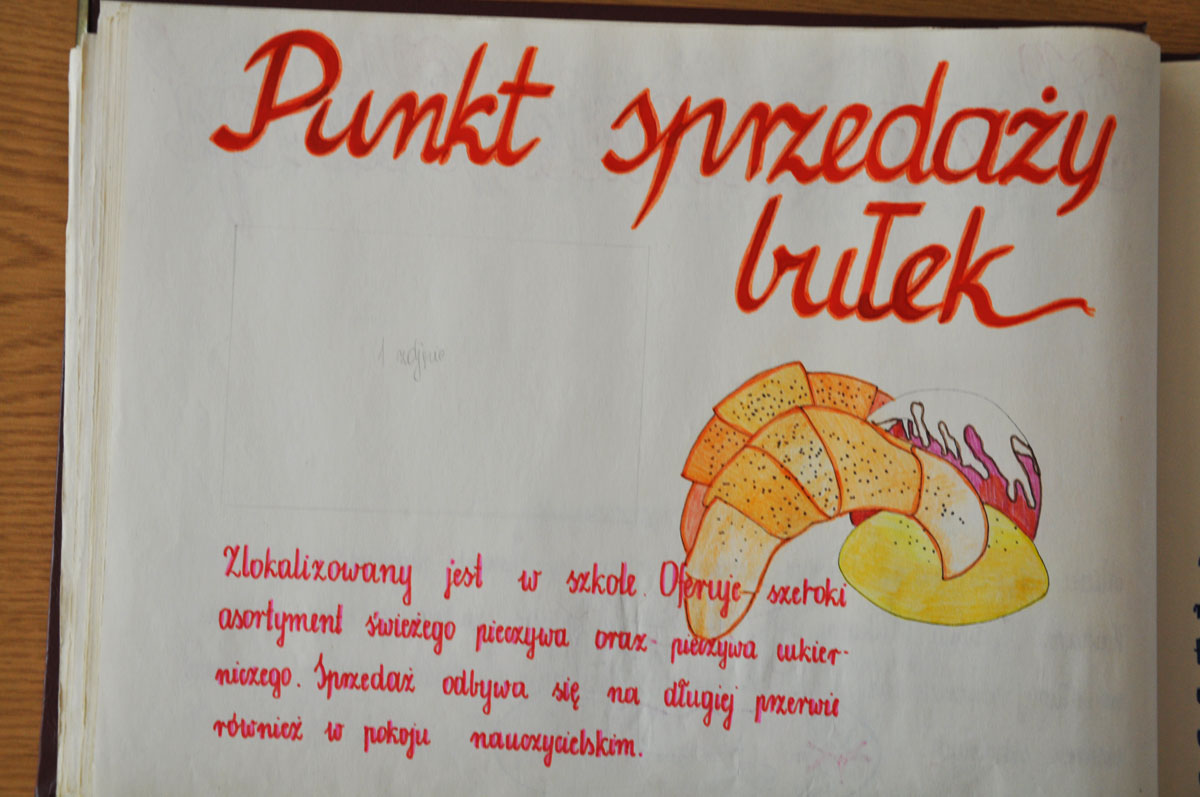 Punkt sprzedaży
bułek
1 zdjęcie
Zlokalizowany jest w szkole. Oferuje szeroki
asortyment świeżego pieczywa oraz pieczywa cukier-
niczego. Sprzedaż odbywa się na długiej przerwie
również w pokoju nauczycielskim.